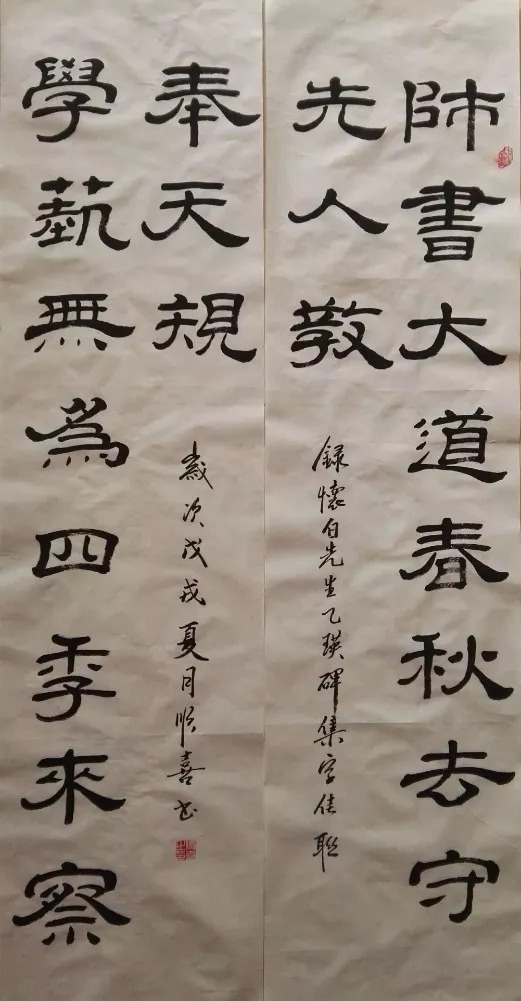 師書大道春秋去守
先人教
録懷白先生乙瑛碑集字佳聯
學蓺無爲四季來察
奉天規
歲次戊戌夏月順喜书